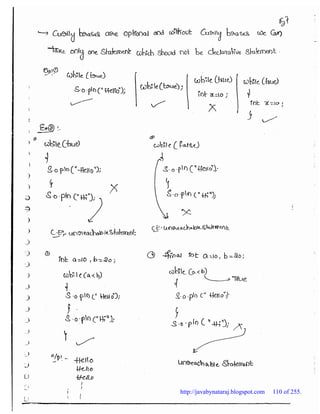 57
→ Curly braces are optional and without Curly braces we can
take only one Statement which should not be declarative Statement.
Ex①
while (true)
S.o.pln("Hello");
✓
while(true);
✓
while (true)
int x=10;
X
while (true)
{
int x=10;
}
✓
Ex②:-
①
while (true)
{
S.o.pln("Hello");
}
S.o.pln("Hi");
X
C.E: unreachable statement
②
while (false)
{
S.o.pln("Hello");
}
S.o.pln("Hi");
X
C.E: unreachable statement
③
int a=10, b=20;
while (a<b)
{
S.o.pln("Hello");
}
S.o.pln("Hi");
}
✓
o/p:- Hello
Hello
Hello
④ final int a=10, b=20;
while (a<b)
True
{
S.o.pln("Hello");
}
S.o.pln("Hi");
X
unreachable Statement
http://javabynataraj.blogspot.com 110 of 255.